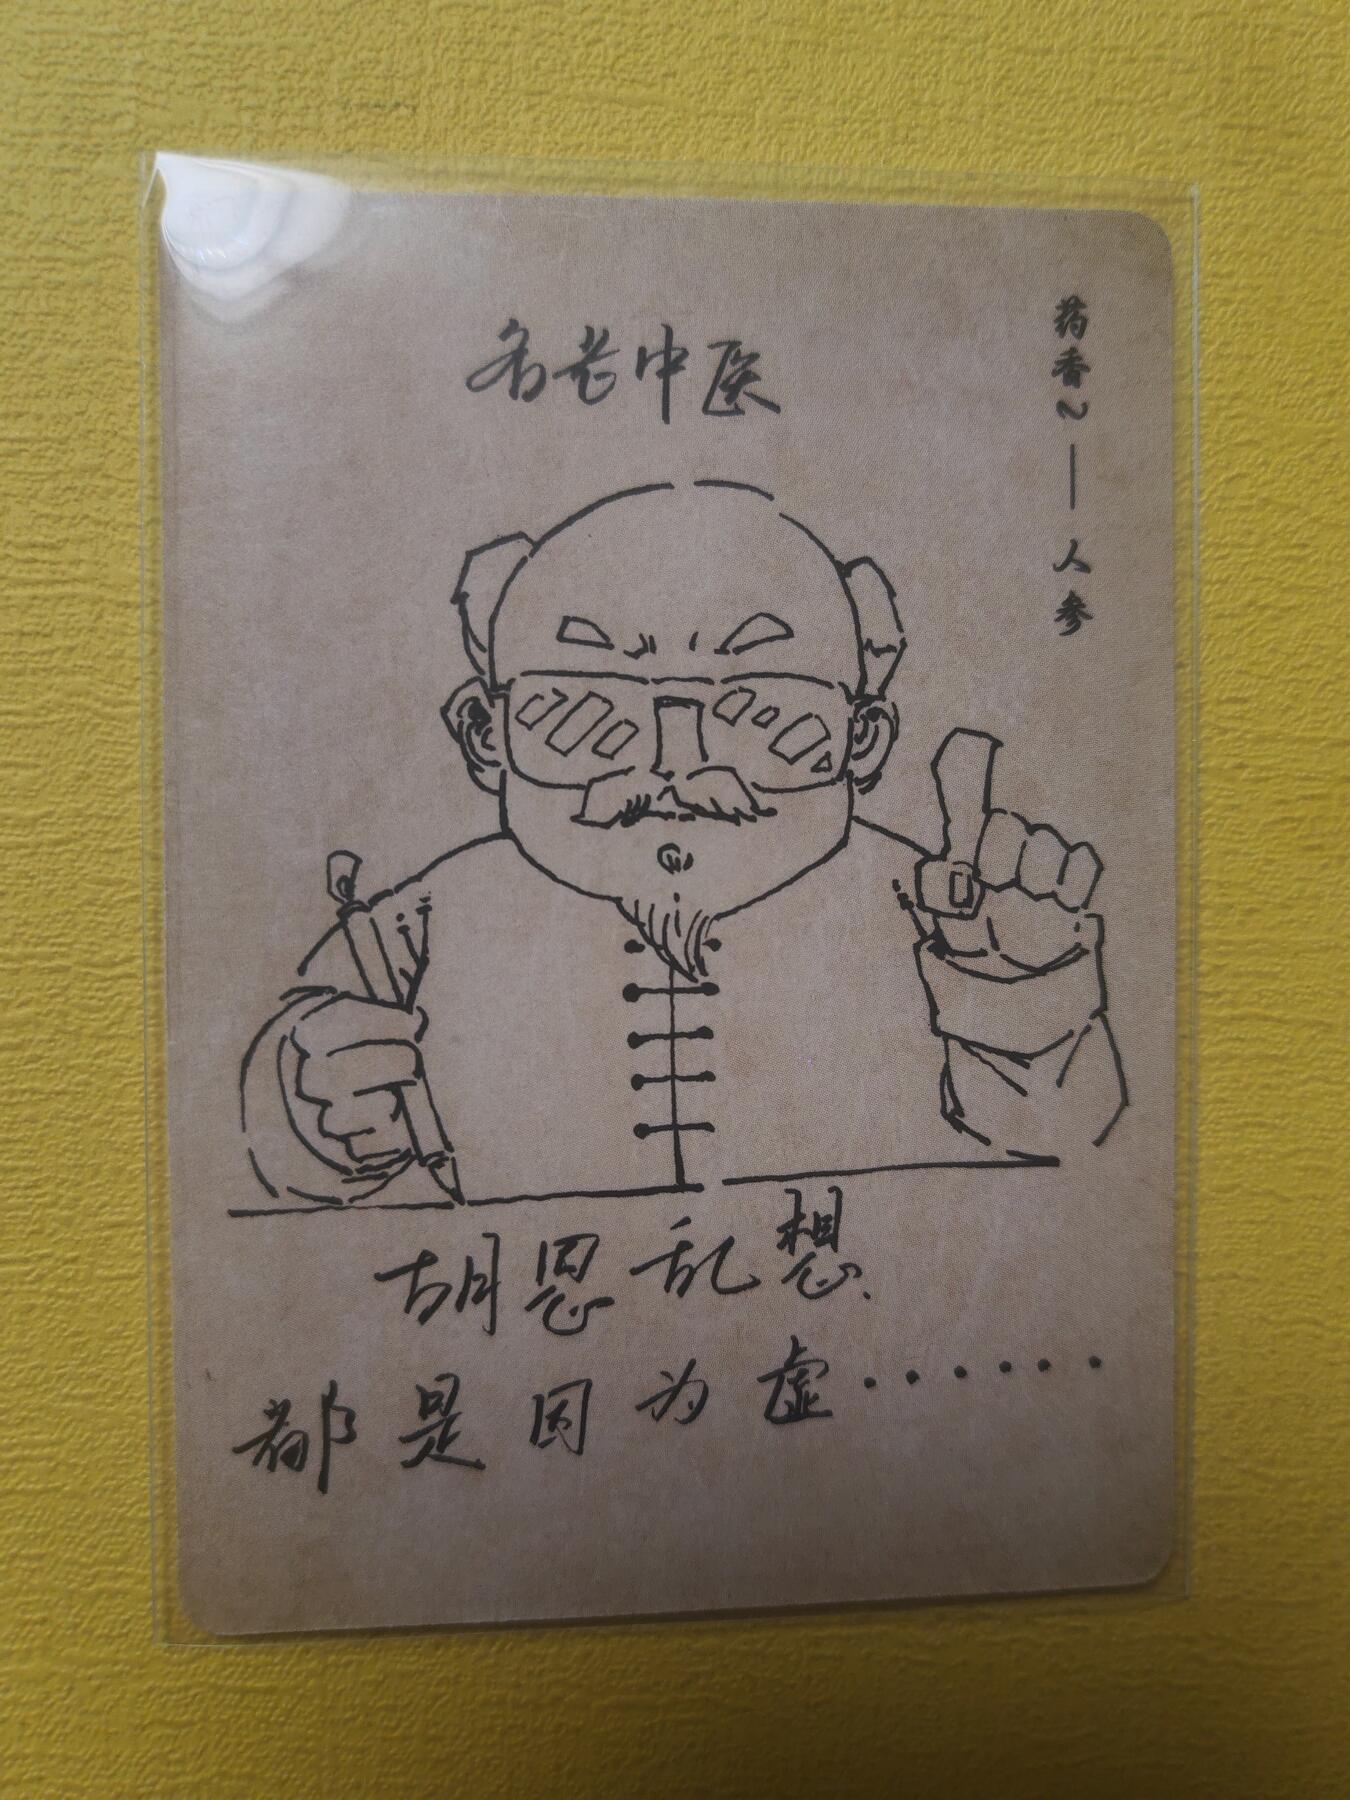 名老中医
药香~——人参
胡思乱想.
都是因为虚······